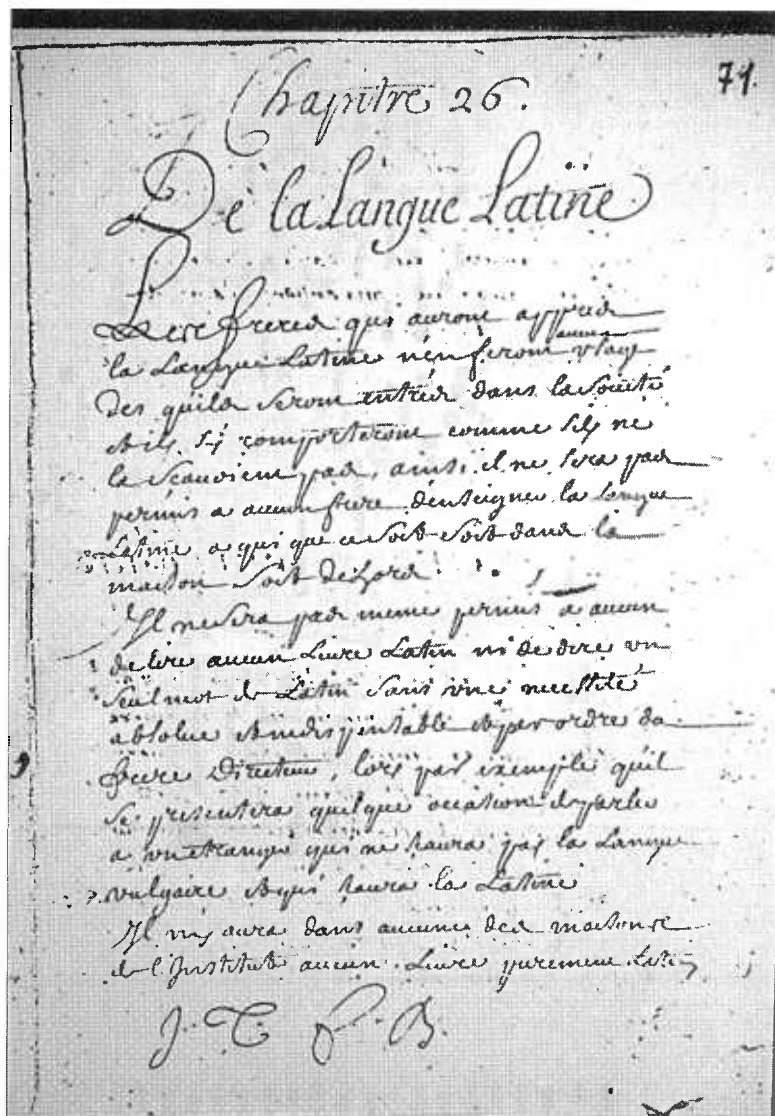 71.
Chapitre 26.
De la Langue Latine
Les freres qui auront appris
la Langue Latine n'en feront aucun usage
des quils seront entrés dans la Société
et ils sy comporteront comme sils ne
la scavoient pas, ainsi il ne sera pas
permis a aucun frere denseigner la Langue
Latine a qui que ce soit soit dans la
maison soit dehors.
Il ne sera pas meme permis a aucun
de lire aucun Livre Latin ni de dire un
seul mot de Latin sans une necessité
absolue et indispensable et par ordre du
frere Directeur, lors par exemple quil
se presentera quelque occasion de parler
a un etranger qui ne scaura pas la Langue
vulgaire et qui scaura la Latine
Il ny aura dans aucune des maisons
de l'Institut aucun Livre purement Latin